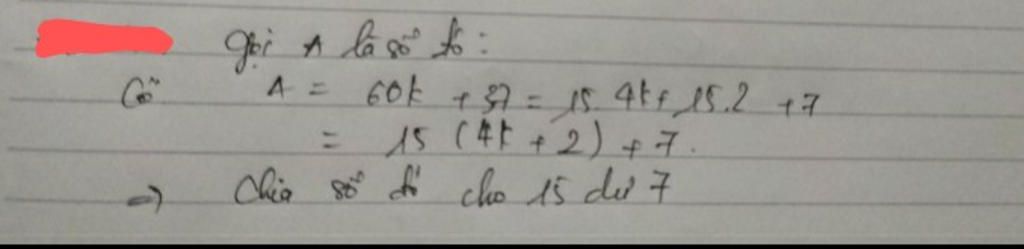 Gọi A là số đó :
Có A = 60k + 37 = 15.4k + 15.2 + 7
= 15 (4k + 2) + 7.
=> Chia số đó cho 15 dư 7